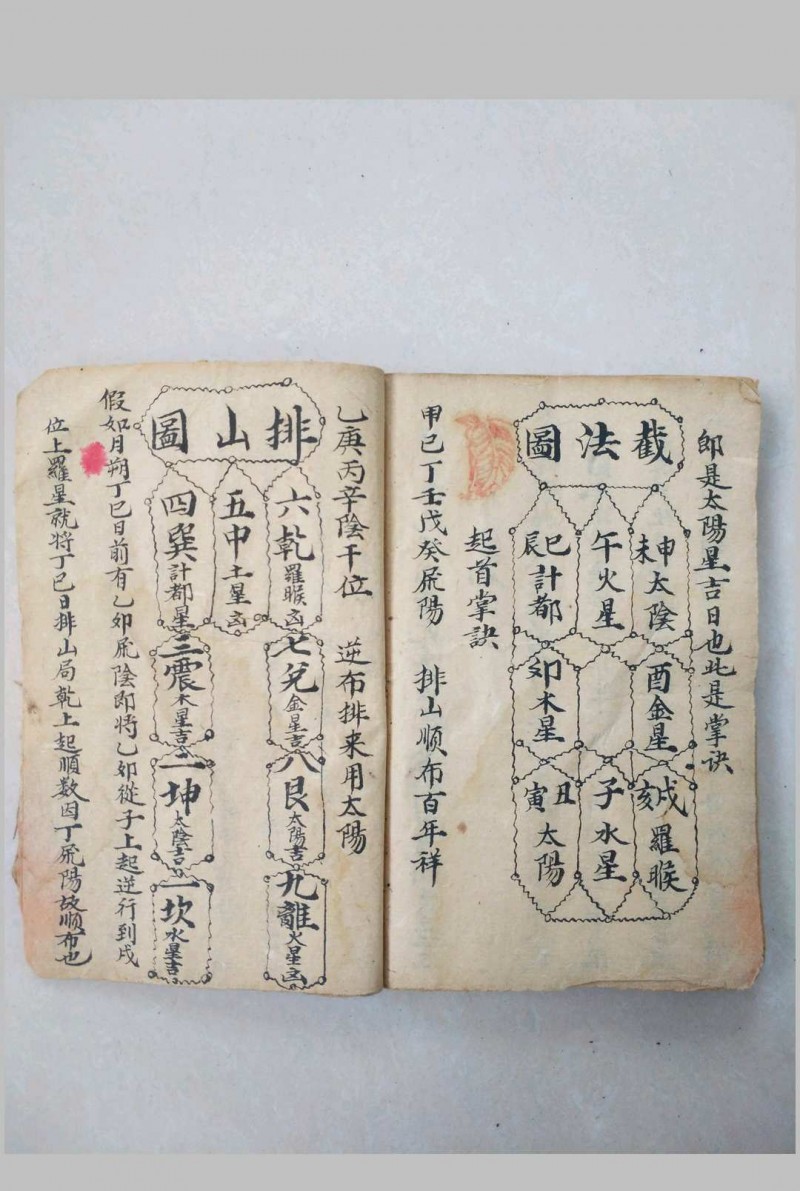 即是太陽星吉日也此是掌訣
截法圖
申未太陰
午火星
巳辰計都
酉金星
卯木星
戌亥羅睺
子水星
丑寅太陽
起首掌訣
甲己丁壬戊癸屍陽 排山順布百年祥
乙庚丙辛陰干位 逆布排来用太陽
排山圖
六乾羅睺凶
五中土星凶
四巽計都星凶
七兌金星吉
三震木星吉
八艮太陽吉
二坤太陰吉
九離火星凶
一坎水星吉
假如月朔丁巳日前有乙卯屍陰即將乙卯從子上起逆行到戌
位上羅星就将丁巳日排山局乾上起順数因丁屍陽故順布也